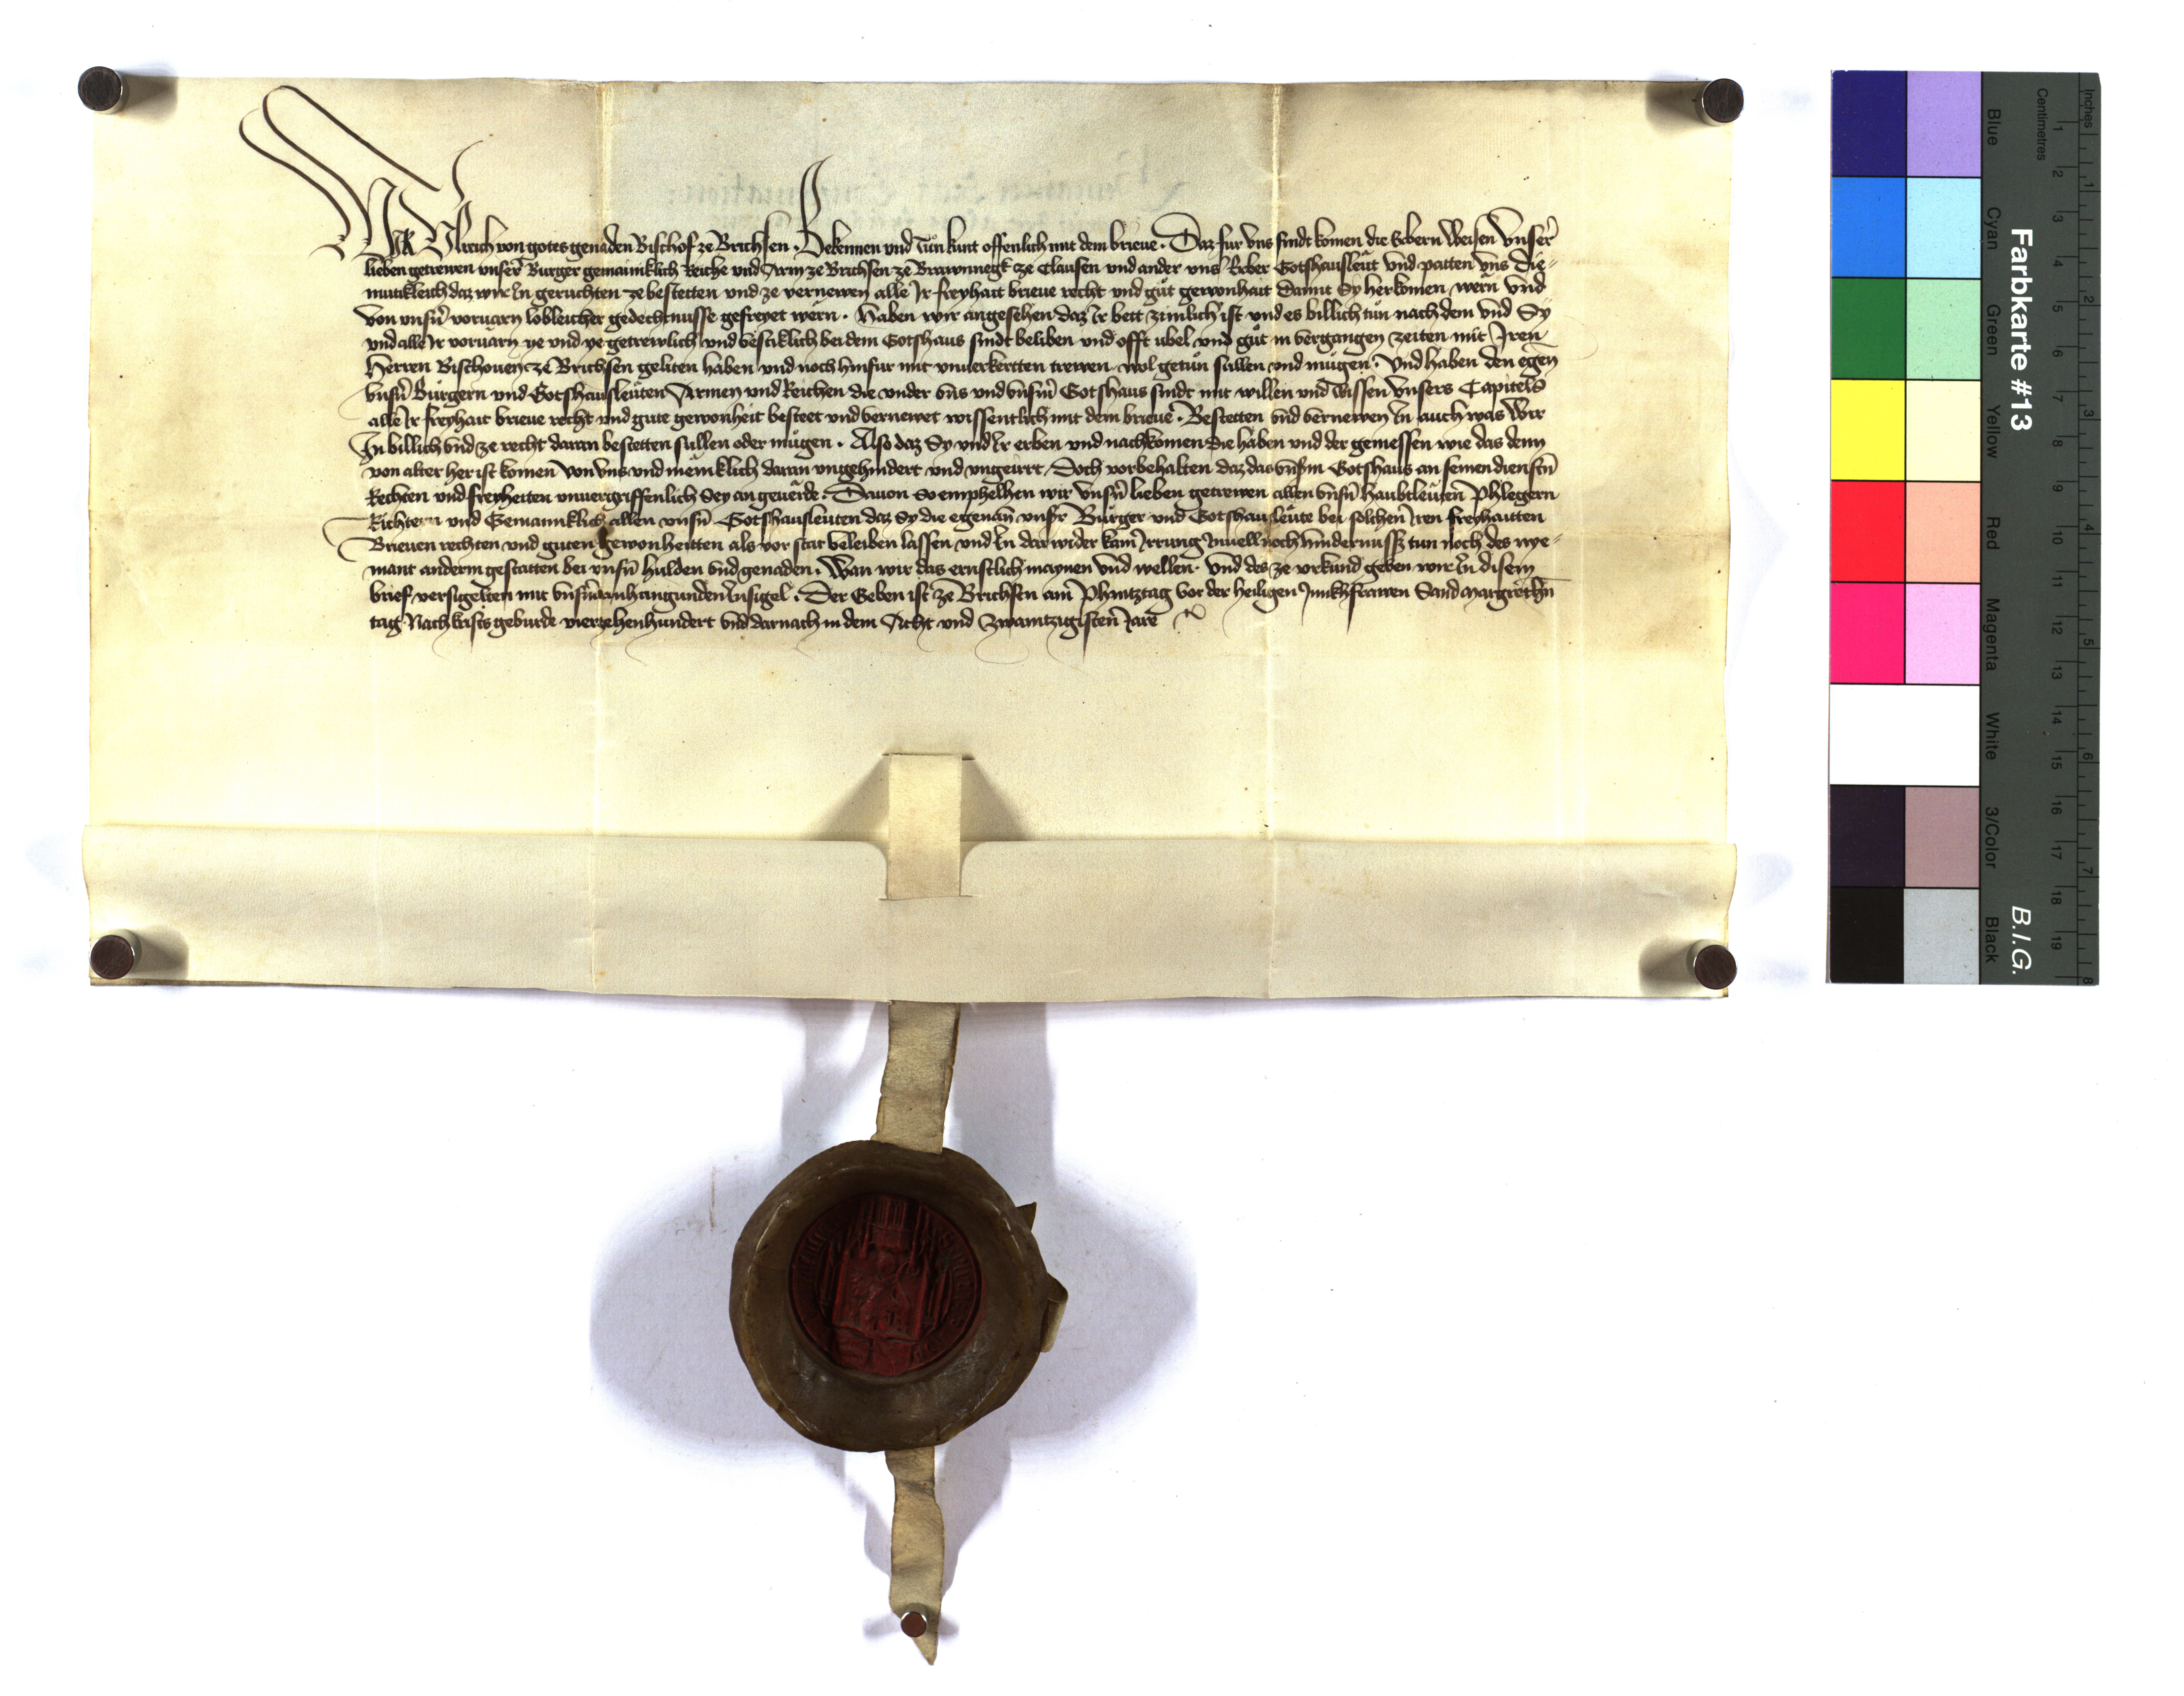 Wir Ulreich von gotes genaden Bischof ze Brichsen . Bekennen und tůn kunt offenlich mit dem brieue . Daz fur vns sindt komen die Erbern Weisen Vnser
lieben getrewen vnser Burger gemainiklich Reiche und Arm ze Brichsen ze Brawnnegk ze Clausen und ander vns̉ Gotshausleüt vnd patten vns die-
mutikleich daz wir In geruchten ze bestetten und ze vernewen alle Ir freyhait brieue recht und gůt gewonhait Damit Sy herkomen wern vnd
von vnsn̄ voruarn lobleicher gedechtnusse gefreyet wern . Haben wir angesehen daz Ir bett zimlich ist und es billich tůn nach dem vnd Sy
vnd alle Ir voruarn ye und ye getrewlich und vestiklich bei dem Gotshaus sindt beliben und offt ubel vnd gůt in vergangen zeiten mit Iren
Herren Bischouen ze Brichsen geliten haben und noch hinfur mit vnuerkertten trewen wol getůn sullen vnd mugen . Vnd haben den egen̄
vnsn̄ Burgern und Gotshausleüten Armen und Reichen die vnder vns vnd vnsm̄ Gotshaus sindt mit willen vnd wissen Vnsers Capitels
alle Ir freyhait brieue recht und gute gewonheit besteet und vernewet wissentlich mit dem brieue . Bestetten vnd vernewen In auch was Wir
In billich vnd ze recht daran bestetten sullen oder mugen . Also daz Sy vnd Ir erben und nachkomen die haben und der geniessen wie das denn
von alter her ist komen von vns und meniklich daran vngehindert und vngeirrt / Doch vorbehalten daz das vnsm̄ Gotshaus an seinen dienstn̄
Rechten und freyheiten vnuergriffenlich Sey an geuerde . Dauon so emphelhen wir Vnsn̄ lieben getrewen allen vnsn̄ haubtleüten Phlegern
Richtern vnd Gemainklich allen vnsn̄ Gotshausleuten daz Sy die egenan̄ vnsr̄ Burger vnd Gotshausleüte bei solhen Iren freyhaitten
Brieuen rechten und guten gewonheitten als vor stat beleiben lassen und In dawider kain Irrung Inuell noch hindernuss tun noch des nye-
mant anderm gestatten bei vnsn̄ hulden vnd genaden . Wan wir das ernstlich maynen vnd wellen . Vnd des ze vrkund geben wir In disen
brief versigelten mit vnsm̄ anhangunden Insigel . Der Geben ist ze Brichsen am Phintztag vor der heiligen Junkhfrawen Sand Margrethn̄
tag Nach krists geburde vierzehenhundert vnd darnach in dem Acht vnd Zwaintzigisten Jare
Farbkarte #13
B.I.G.
Blue
Cyan
Green
Yellow
Red
Magenta
White
3/Color
Black
Inches
1 2 3 4 5 6 7 8
Centimetres
1 2 3 4 5 6 7 8 9 10 11 12 13 14 15 16 17 18 19